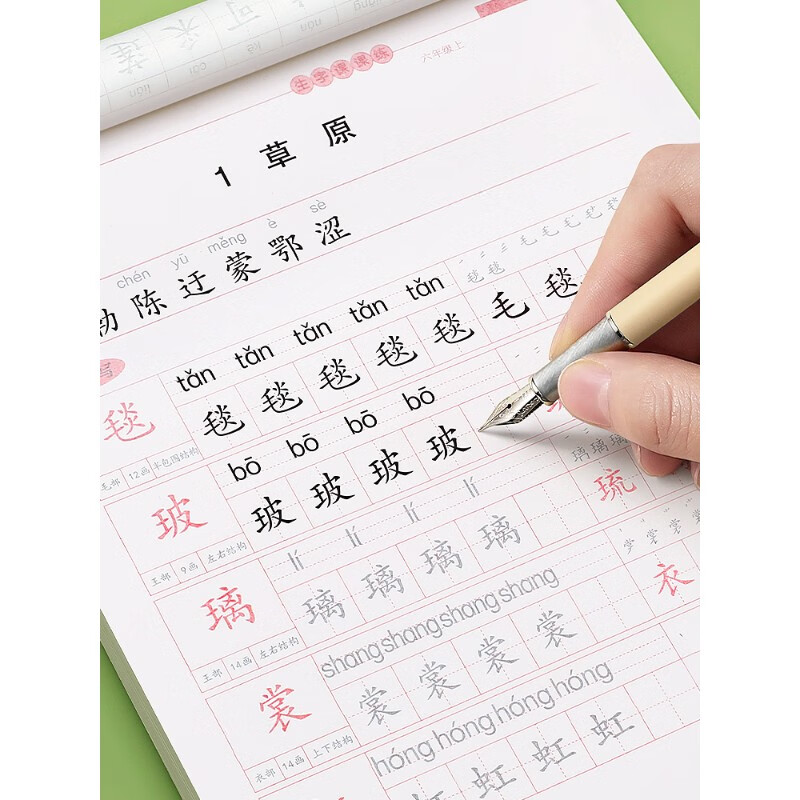 生字课课练
六年级上
1 草原
chén yū měng è sè
勃陈迂蒙鄂涩
写
tǎn tǎn tǎn tǎn tǎn
毯 毯 毯 毯 毯 毯 毛 毯
毛部 12画 半包围结构
bō bō bō bō
玻 玻 玻 玻 玻
王部 9画 左右结构
lí lí lí lí
璃 璃 璃 璃 璃 琉
王部 14画 左右结构
shang shang shang shang
裳 裳 裳 裳 裳 衣
衣部 14画 上下结构
hóng hóng hóng hóng
虹 虹 虹